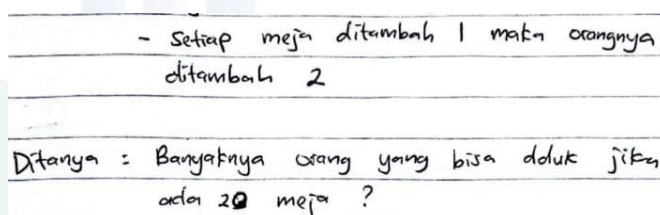 - Setiap meja ditambah 1 maka orangnya
ditambah 2
Ditanya : Banyaknya orang yang bisa dduk jika
ada 20 meja ?